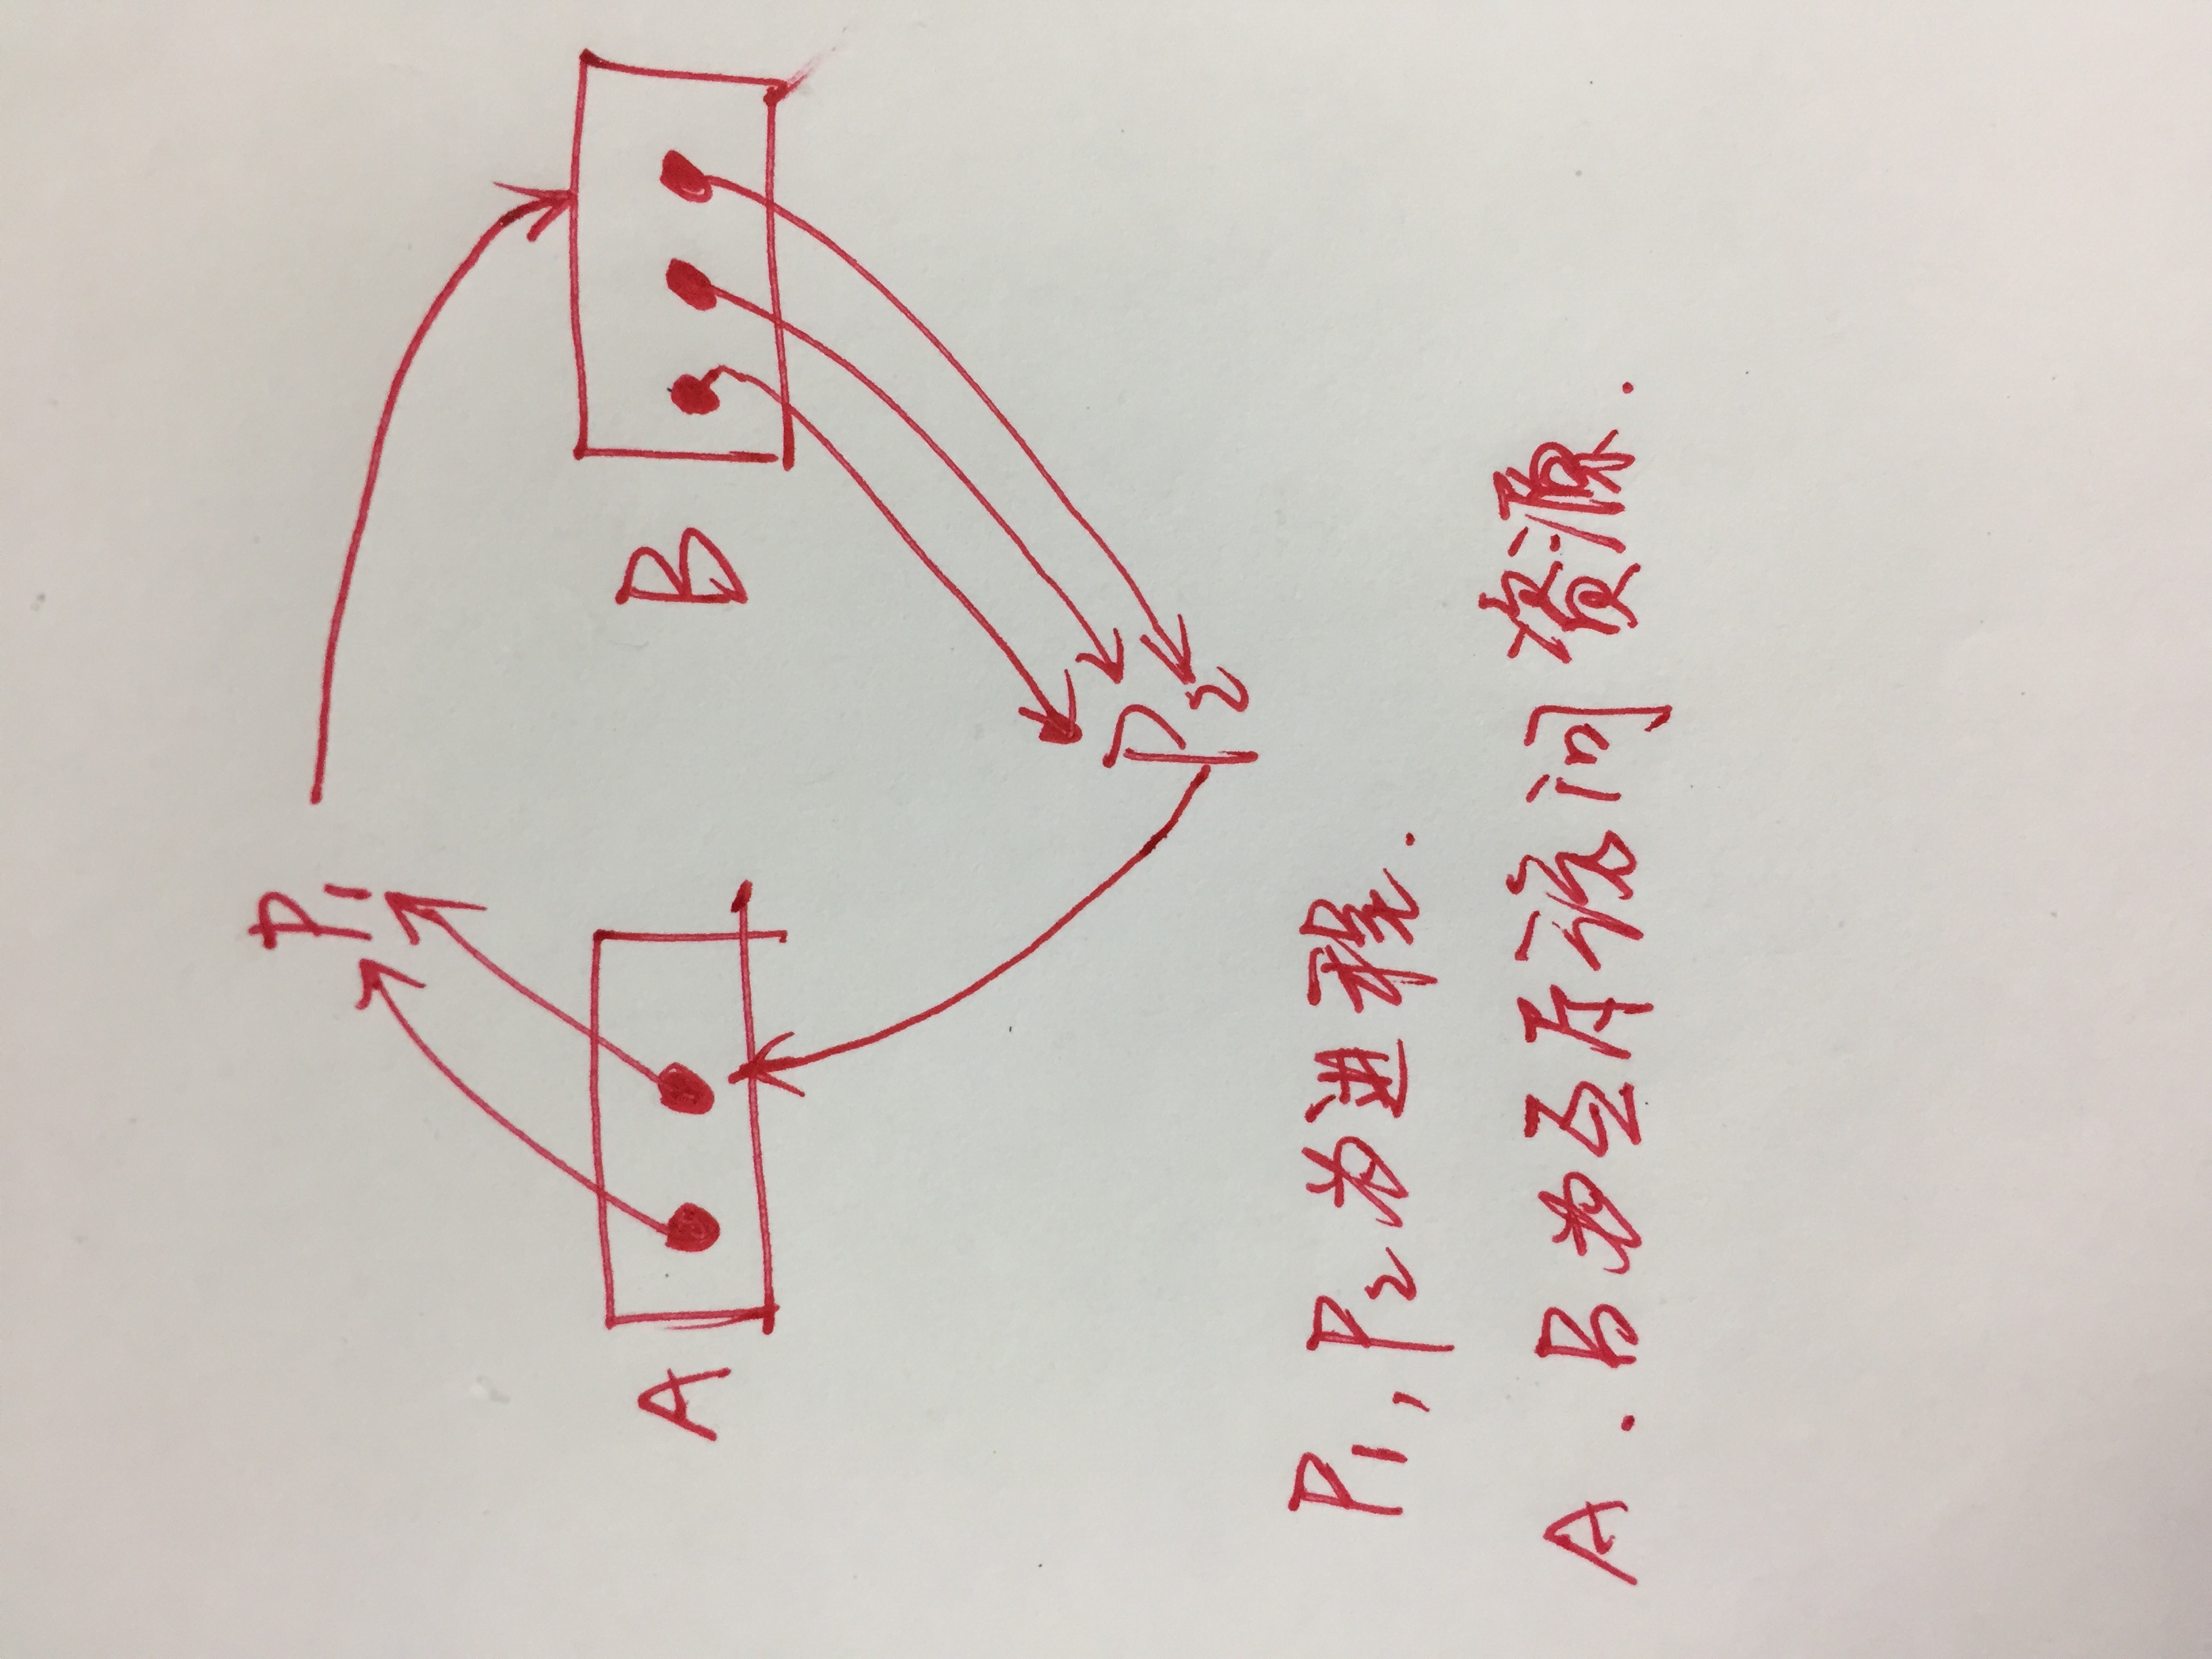 P₁
A
B
P₂
P₁,P₂为进程.
A.B为互斥访问资源.